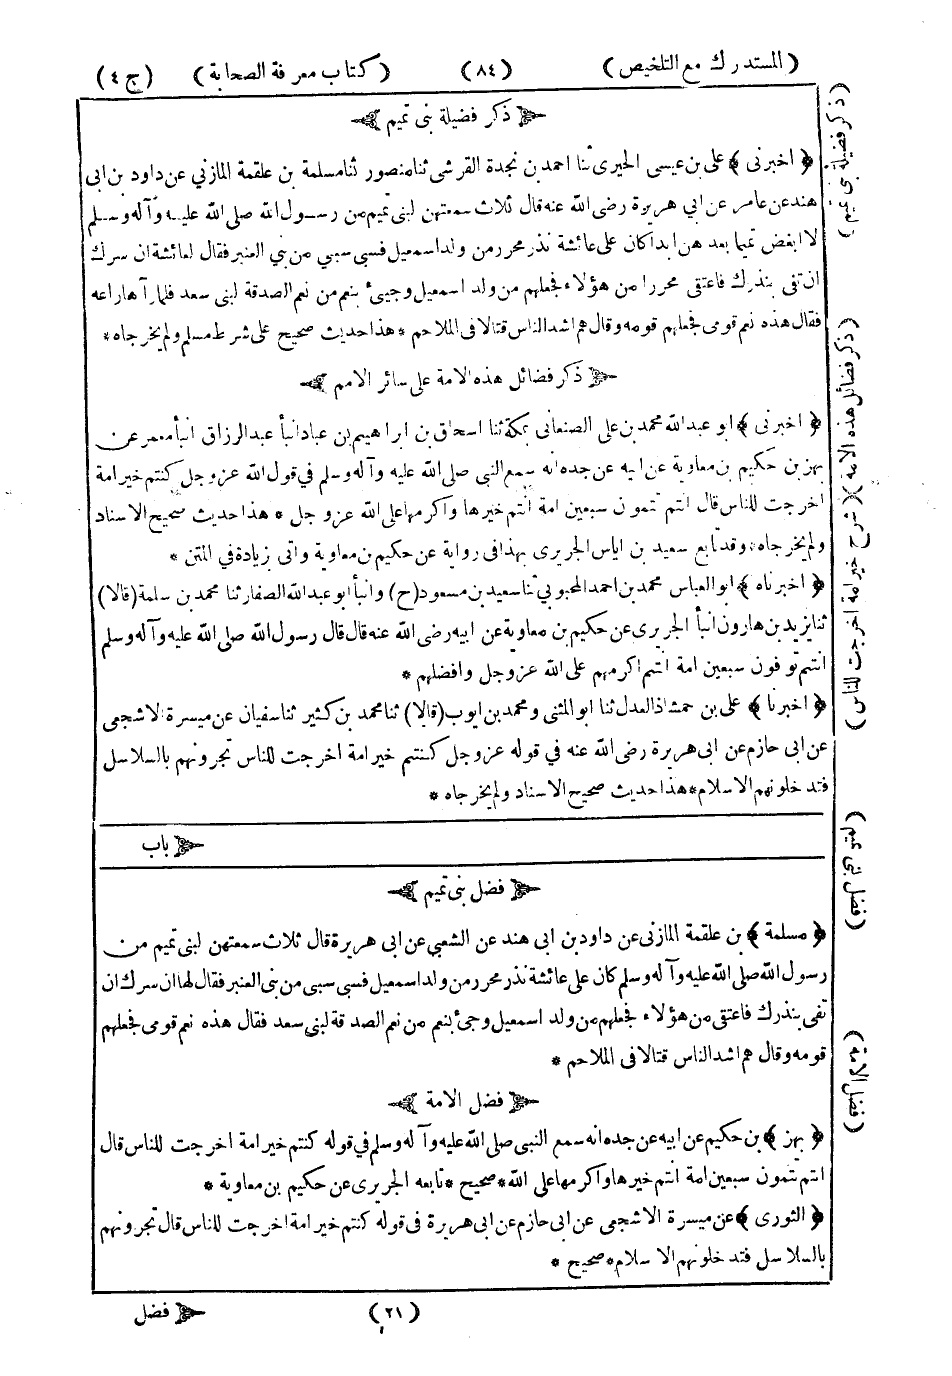 (المستدرك مع التلخيص) (٨٤) (كتاب معرفة الصحابة) (ج ٤)
ذكر فضيلة بنى تميم
﴿ اخبرنى ﴾ على بن عيسى الحيرى ثنا احمد بن نجدة القرشى ثنا منصور ثنا مسلمة بن علقمة المازني عن داود بن ابى
هند عن عامر عن ابي هريرة رضى الله عنه قال ثلاث سمعتهن لبنى تميم من رسول الله صلى الله عليه وآله وسلم
لا ابغض تميما بعد هن ابدا كان على عائشة نذر محرر من ولد اسمعيل فسبى سبي من بني العنبر فقال لعائشة ان سرك
ان تفى بنذرك فاعتقى محررا من هؤلاء فجعلهم من ولد اسمعيل وجيئ بنعم من نعم الصدقة لبنى سعد فلما رآها راعه
فقال هذه نعم قومى فجعلهم قومه وقال هم اشد الناس قتالا فى الملاحم * هذا حديث صحيح على شرط مسلم ولم يخرجاه *
ذكر فضائل هذه الامة على سائر الامم
﴿ اخبرنى ﴾ ابو عبد الله محمد بن على الصنعانى بمكة ثنا اسحاق بن ابراهيم بن عباد انبأ عبد الرزاق انبأ معمر عن
بهز بن حكيم بن معاوية عن ابيه عن جده انه سمع النبي صلى الله عليه وآله وسلم في قول الله عز وجل كنتم خير امة
اخرجت للناس قال انتم تتمون سبعين امة انتم خيرها واكرمها على الله عز وجل * هذا حديث صحيح الاسناد
ولم يخرجاه * وقد تابع سعيد بن اياس الجريرى بهذا فى رواية عن حكيم بن معاوية واتى زيادة في المتن *
﴿ اخبرناه ﴾ ابو العباس محمد بن احمد المحبوبي ثنا سعيد بن مسعود (ح) وانبأ ابو عبد الله الصفار ثنا محمد بن سلمة (قالا)
ثنا يزيد بن هارون انبأ الجريرى عن حكيم بن معاوية عن ابيه رضى الله عنه قال قال رسول الله صلى الله عليه وآله وسلم
انتم توفون سبعين امة انتم اكرمهم على الله عز وجل وافضلهم *
﴿ اخبرنا ﴾ على بن حمشاذ العدل ثنا ابو المثنى ومحمد بن ايوب (قالا) ثنا محمد بن كثير ثنا سفيان عن ميسرة الاشجعى
عن ابى حازم عن ابى هريرة رضى الله عنه في قوله عز وجل كنتم خير امة اخرجت للناس تجرونهم بالسلاسل
فتدخلونهم الاسلام * هذا حديث صحيح الاسناد ولم يخرجاه *
باب
فضل بنى تميم
﴿ مسلمة ﴾ بن علقمة المازنى عن داود بن ابى هند عن الشعبي عن ابى هريرة قال ثلاث سمعتهن لبنى تميم من
رسول الله صلى الله عليه وآله وسلم كان على عائشة نذر محرر من ولد اسمعيل فسبى سبى من بنى العنبر فقال لها ان سرك ان
تفى بنذرك فاعتق من هؤلاء فجعلهم من ولد اسمعيل وجئ بنعم من نعم الصدقة لبنى سعد فقال هذه نعم قومى فجعلهم
قومه وقال هم اشد الناس قتالا فى الملاحم *
فضل الامة
﴿ بهز ﴾ بن حكيم عن ابيه عن جده انه سمع النبى صلى الله عليه وآله وسلم في قوله كنتم خير امة اخرجت للناس قال
انتم تتمون سبعين امة انتم خيرها واكرمها على الله * صحيح * تابعه الجريرى عن حكيم بن معاوية *
﴿ الثورى ﴾ عن ميسرة الاشجعى عن ابى حازم عن ابى هريرة فى قوله كنتم خير امة اخرجت للناس قال تجرونهم
بالسلاسل فتدخلونهم الاسلام * صحيح *
(٢١) فضل
(ذكر فضيلة بنى تميم)
(ذكر فضائل هذه الامة) (شرح خير امة اخرجت للناس)
(فضل بنى تميم)
(فضل الامة)